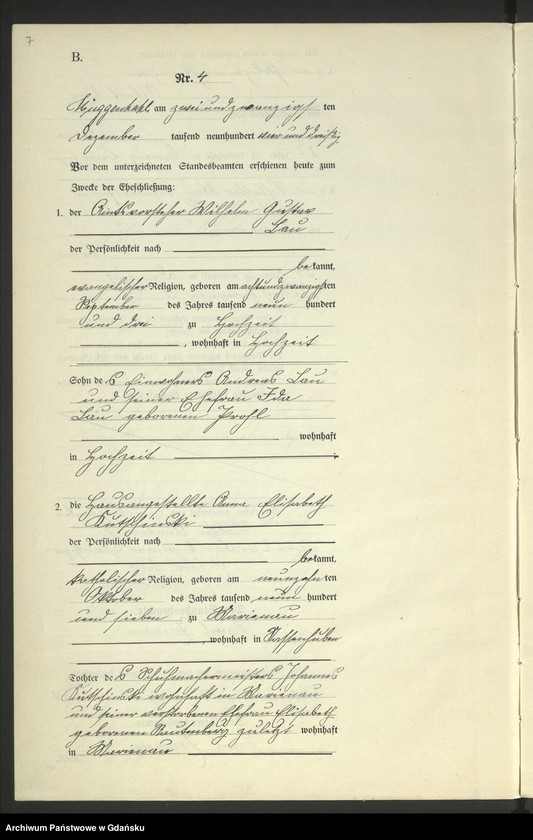 7
B.
Nr. 4
Müggenhahl am zweiundzwanzigsten
Dezember tausend neunhundert vier und dreißig.
Vor dem unterzeichneten Standesbeamten erschienen heute zum
Zwecke der Eheschließung:
1. der Amtsvorsteher Wilhelm Gustav
Lau
der Persönlichkeit nach
bekannt,
evangelischer Religion, geboren am achtundzwanzigsten
September des Jahres tausend neun hundert
und drei zu Hochzeit
, wohnhaft in Hochzeit
Sohn des Einwohners Andreas Lau
und seiner Ehefrau Ida
Lau geborenen Prohl
wohnhaft
in Hochzeit
2. die Hausangestellte Anna Elisabeth
Kutschinski
der Persönlichkeit nach
bekannt,
katholischer Religion, geboren am neunzehnten
Oktober des Jahres tausend neun hundert
und sieben zu Marienau
, wohnhaft in Nassenhuben
Tochter des Schuhmachermeisters Johannes
Kutschinski wohnhaft in Marienau
und seiner verstorbenen Ehefrau Elisabeth
geborenen Rautenberg zuletzt wohnhaft
in Marienau
Archiwum Państwowe w Gdańsku